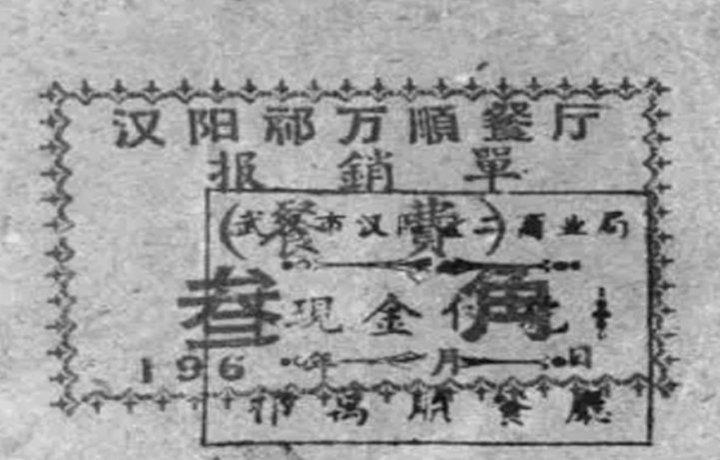 汉阳祁万順餐厅
报銷單
(餐費)
武汉市汉阳区二商业局
叁角
现金付讫
196 年 月 日
祁萬順餐廳